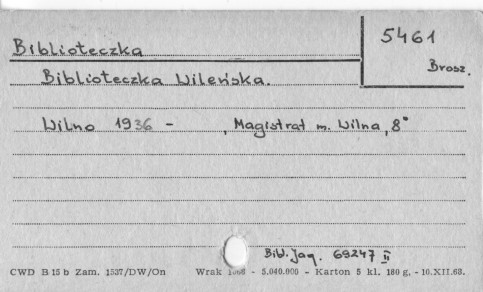 Biblioteczka
5461
Brosz.
Biblioteczka Wileńska.
Wilno 1936 - , Magistrat m. Wilna, 8°
Bib. Jag. 69247 II
CWD B 15 b Zam. 1537/DW/On Wrak - 5.040.000 - Karton 5 kl. 180 g, - 10.XII.63.